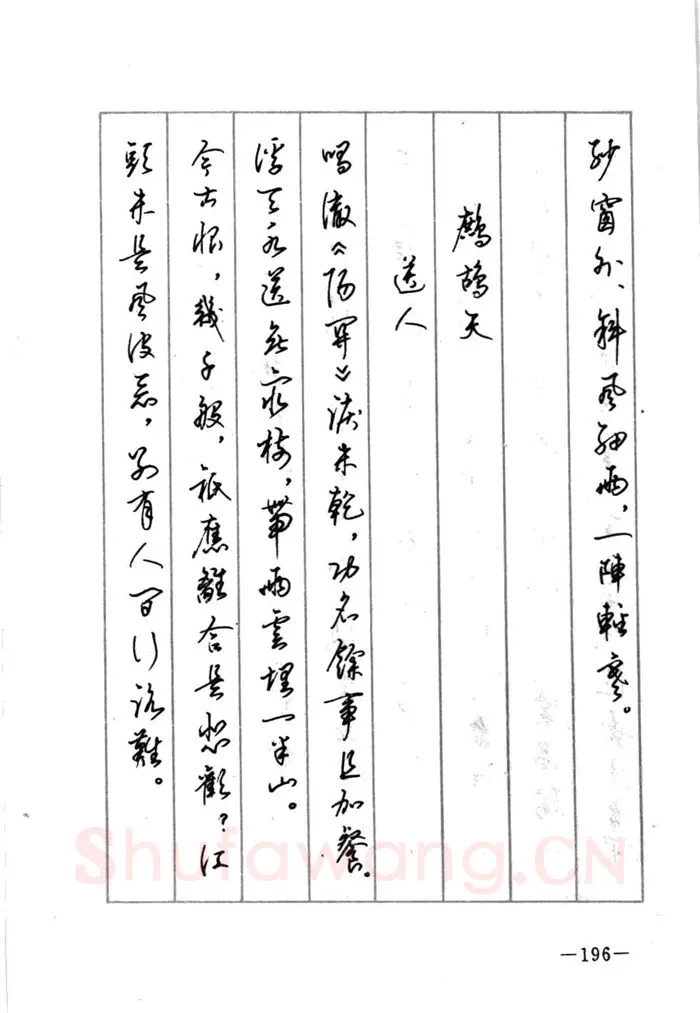 紗窗外、斜風細雨，一陣輕寒。
鷓鴣天
送人
唱徹《陽關》淚未乾，功名餘事且加餐。
浮天水送無窮樹，帶雨雲埋一半山。
今古恨，幾千般，祇應離合是悲歡？江
頭未是風波惡，別有人間行路難。
Shufawang.CN
—196—